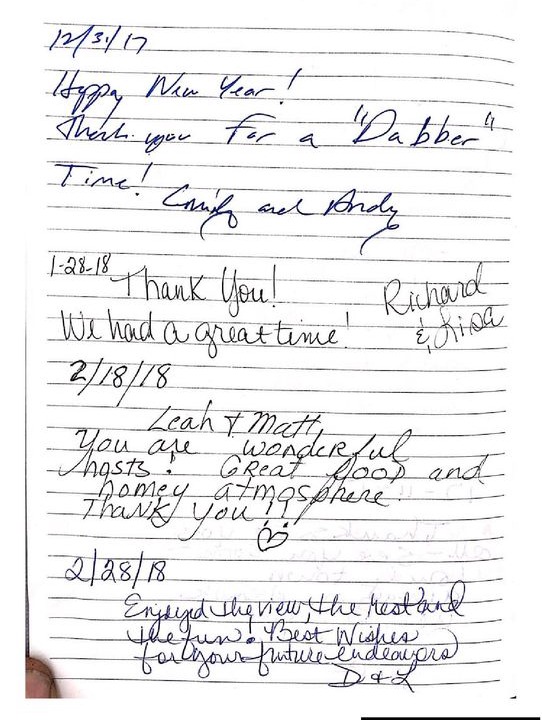 12/31/17
Happy New Year!
Thank you For a "Dabber"
Time!
and Andy
1-28-18
Thank You!
Richard
We had a great time!
& Lisa
2/18/18
Leah & Matt,
You are wonderful
hosts! Great food and
homey atmosphere.
Thank you!!
2/28/18
Enjoyed the view, the rest and
the fun! Best Wishes
for your future endeavors
D & L